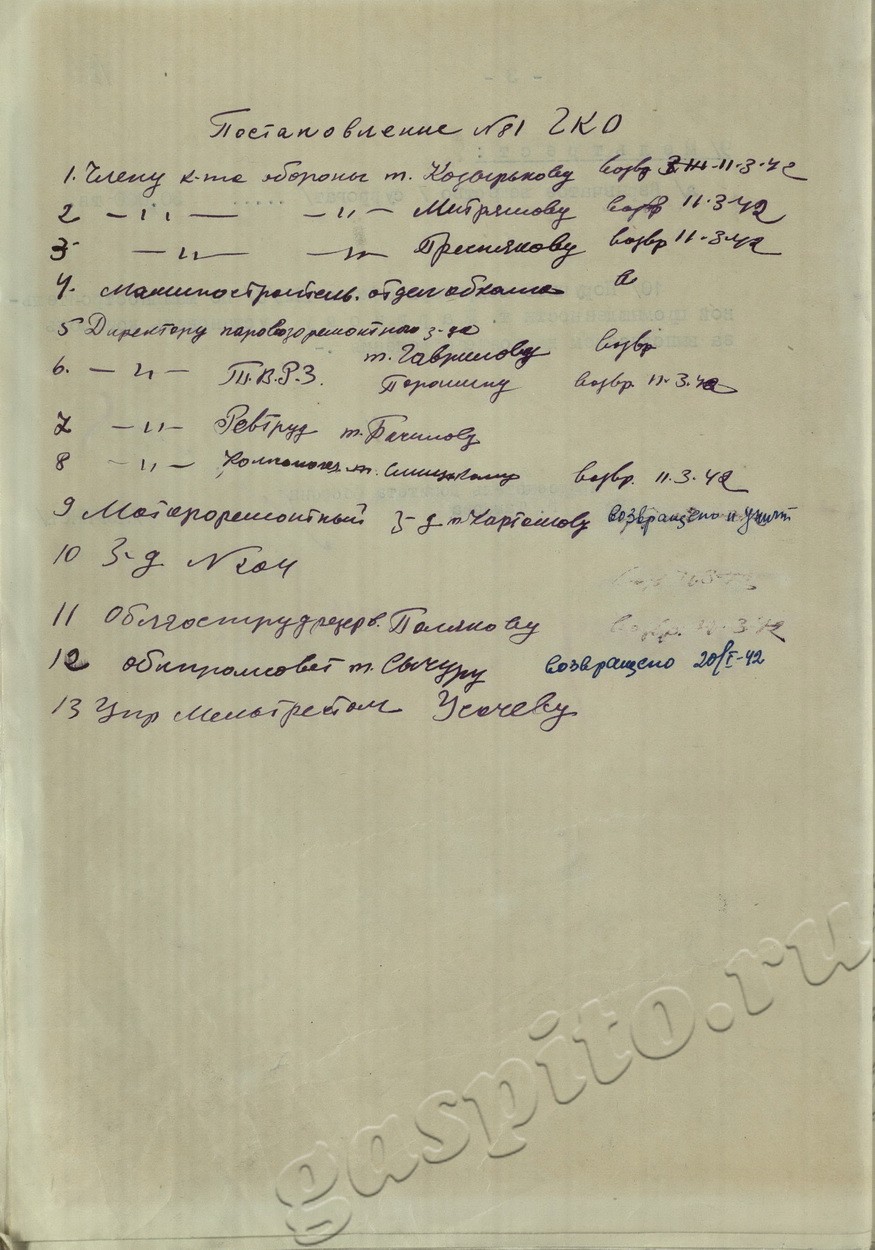 Постановление №81 ГКО
1. Члену к-та обороны т. Козырькову возвр 11-3-42
2 —〃— —〃— Митряшову возвр 11-3-42
3 —〃— —〃— Преснякову возвр 11-3-42
4. Машиностроитель. отдел обкома
5 Директору паровозоремонтного з-да
т. Гаврилову возвр
6. —〃— Т.В.Р.З. Порошину возвр. 11-3-42
7 —〃— Ревтруд т. Бачилову
8 —〃— т. возвр. 11.3.42
9 Мотороремонтный з-д т Картошову возвращено и уничт
10 З-д №204
11 Облгострудрезерв. Полякову возвр. 3-42
12 облпромсовет т. Сычугу возвращено 20/I-42
13 Упр Мельтрестом Усачеву
gaspito.ru